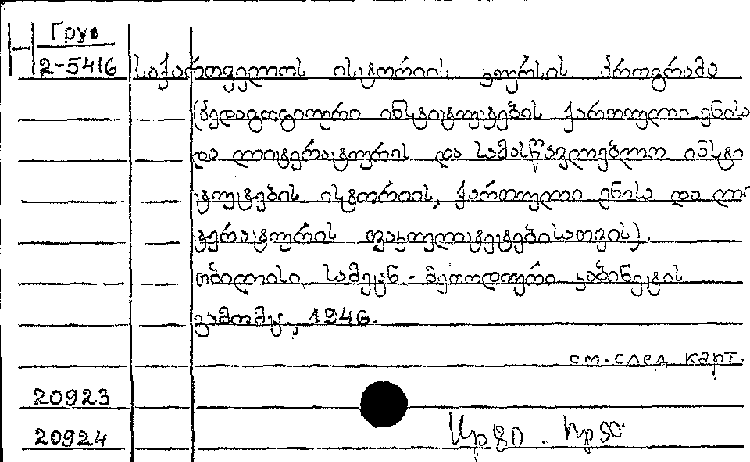 Груз
2-5416 საქართველოს ისტორიის კურსის პროგრამა
(პედაგოგიური ინსტიტუტების ქართული ენისა
და ლიტერატურის და სამასწავლებლო ინსტი
ტუტების ისტორიის, ქართული ენისა და ლი
ტერატურის ფაკულტეტებისათვის).
თბილისი, სამეცნ.-მეთოდური კაბინეტის
გამომც., 1946.
см. след. карт.
20923
20924